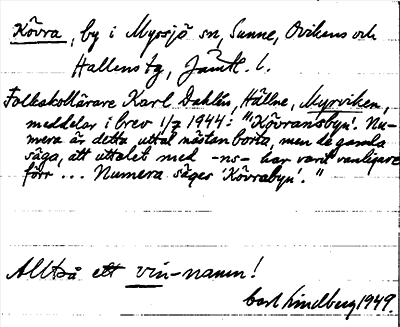 Kövra, by i Myssjö sn, Sunne, Ovikens och
Hallens tg, Jämtl. l.
Folkskollärare Karl Dahlén, Hällne, Myrviken,
meddelar i brev 1/2 1944: "'Kövransbyn'. Nu-
mera är detta uttal nästan borta, men de gamla
säga, att uttalet med -ns- har varit vanligare
förr ... Numera säges 'Kövrabyn'."
Alltså ett vin-namn!
Carl Lindberg 1949.